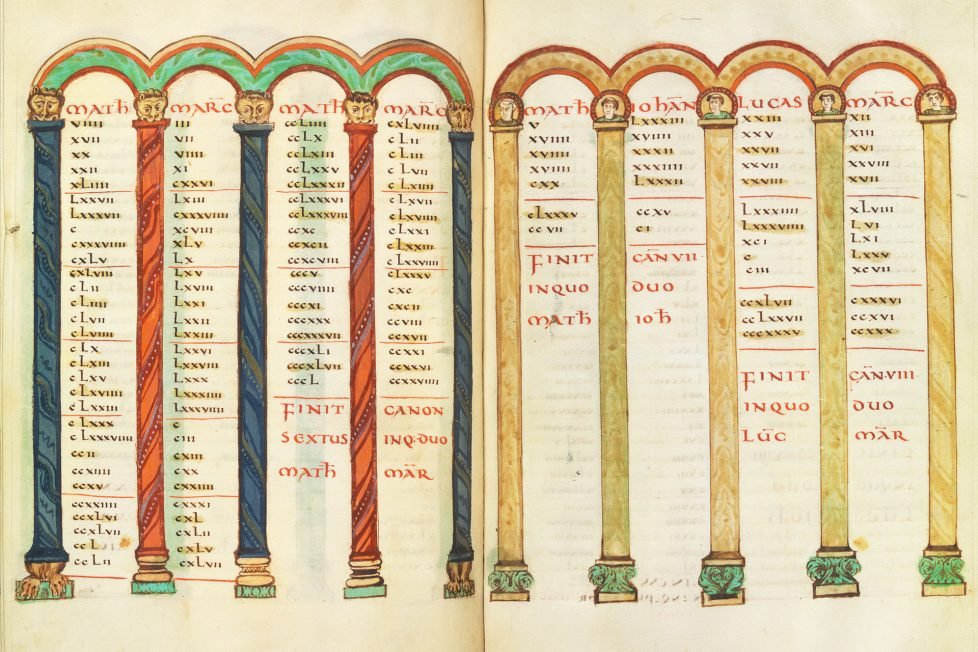 MATH
VIIII
XVII
XX
XXII
XLIIII
LXXVII
LXXXVII
C
CXXXVIIII
CXLV
CXLVIII
CLII
CLIIII
CLVII
CLVIIII
CLX
CLXIII
CLXV
CLXVIIII
CLXXIII
CLXXX
CLXXXVIIII
CCII
CCXIIII
CCXV
CCXXIIII
CCXLVI
CCXLVII
CCL
CCLII
MARC
III
VII
VIIII
XI
CXXVI
LXIII
CXXXVIIII
XCVIII
XLV
LX
LXV
LXVIII
LXXI
LXXII
LXXIII
LXXVI
LXXVIII
LXXX
LXXXIIII
LXXXVIIII
C
CIII
CXIII
CXX
CXXIII
CXXXI
CXL
CXLV
CXLVII
MATH
CCLIIII
CCLX
CCLXIII
CCLXXV
CCLXXXII
CCLXXXVI
CCLXXXVIII
CCXC
CCXCII
CCXCVIII
CCCV
CCCVIIII
CCCXI
CCCXXX
CCCXXXVII
CCCXLI
CCCXLVII
CCCL
FINIT
SEXTUS
MATH
MARC
CXLVIIII
CLII
CLV
CLVII
CLXIIII
CLXVII
CLXVIII
CLXXI
CLXXIII
CLXXVIIII
CLXXXV
CXC
CXCII
CCVIII
CCXVII
CCXXI
CCXXVI
CCXXVIIII
CANON
INQ·DUO
MAR̄
MATH
V
XVIIII
XVIIII
XVIIII
CXX
CLXXXV
CCVII
FINIT
INQUO
MATH
IOHAN̄
LXXXIII
XVIIII
XXXII
XXXIIII
LXXXII
CCXV
CI
CAN̄ VII
DUO
IOH
LUCAS
XXIII
XXV
XXVII
XXVII
XXVIII
LXXXIIII
LXXXVIIII
XCI
C
CIII
CCXLVII
CCLXXVII
CCCXXXV
FINIT
INQUO
LUC̄
MAR̄C
XII
XIII
XVI
XXVIII
XVII
XLVIII
LVI
LXI
LXXV
XCVII
CXXXVI
CCXVI
CCXXX
CAN̄·VIII
DUO
MAR̄